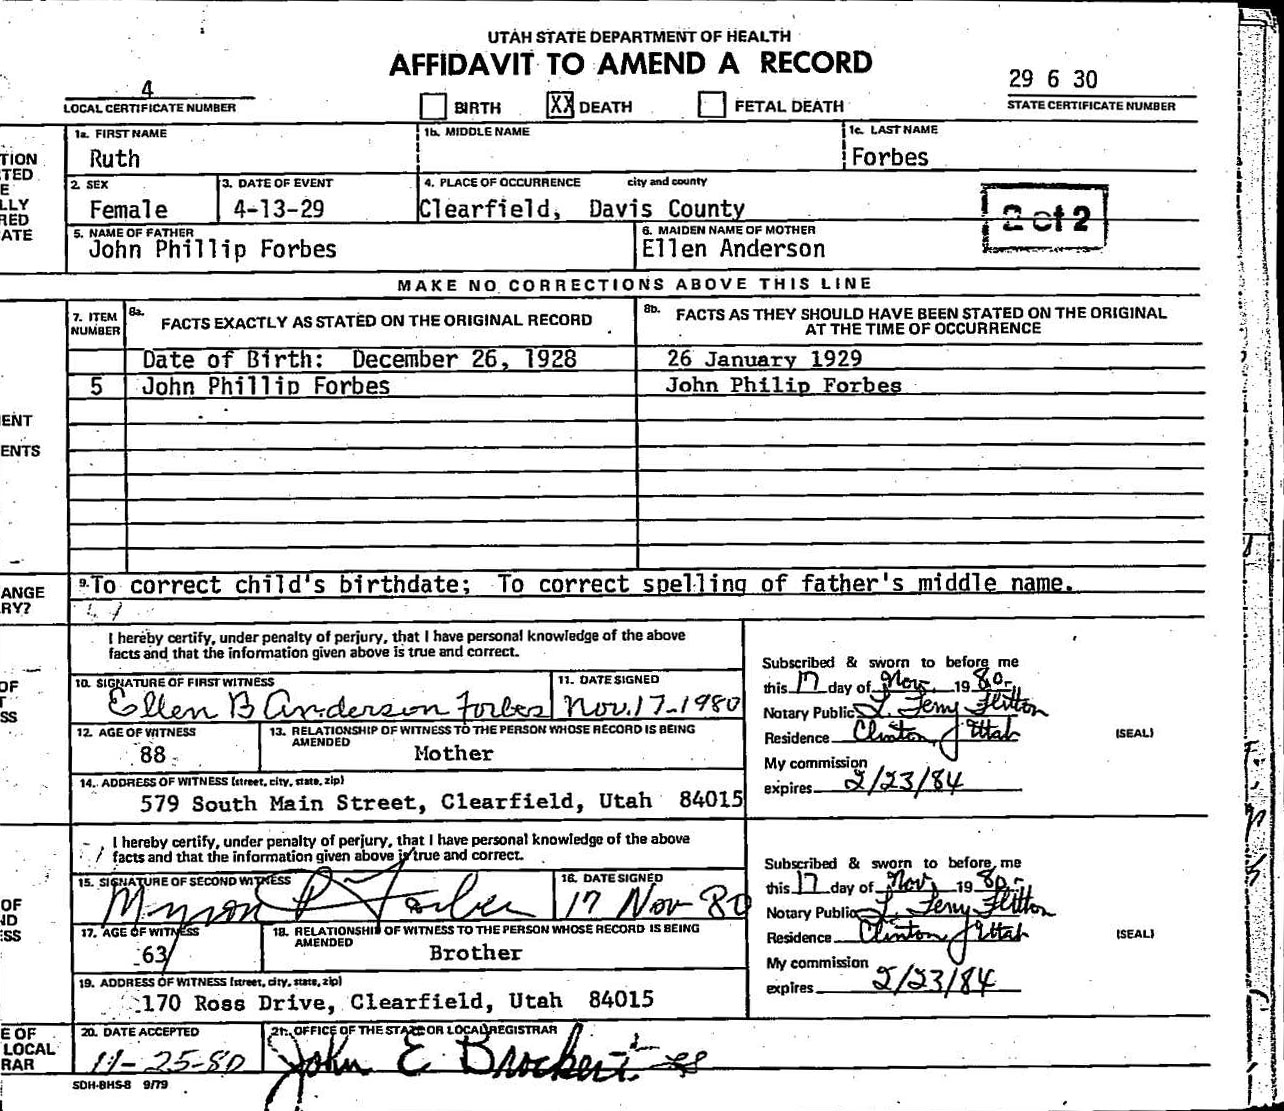 UTAH STATE DEPARTMENT OF HEALTH
AFFIDAVIT TO AMEND A RECORD
4
LOCAL CERTIFICATE NUMBER
BIRTH
XX DEATH
FETAL DEATH
29 6 30
STATE CERTIFICATE NUMBER
TION
TED
E
LLY
RED
ATE
1a. FIRST NAME
Ruth
1b. MIDDLE NAME
1c. LAST NAME
Forbes
2. SEX
Female
3. DATE OF EVENT
4-13-29
4. PLACE OF OCCURRENCE city and county
Clearfield, Davis County
2 of 2
5. NAME OF FATHER
John Phillip Forbes
6. MAIDEN NAME OF MOTHER
Ellen Anderson
MAKE NO CORRECTIONS ABOVE THIS LINE
7. ITEM NUMBER
8a. FACTS EXACTLY AS STATED ON THE ORIGINAL RECORD
8b. FACTS AS THEY SHOULD HAVE BEEN STATED ON THE ORIGINAL
AT THE TIME OF OCCURRENCE
Date of Birth: December 26, 1928 26 January 1929
5 John Phillip Forbes John Philip Forbes
ENT
ENTS
ANGE
RY?
9. To correct child's birthdate; To correct spelling of father's middle name.
I hereby certify, under penalty of perjury, that I have personal knowledge of the above
facts and that the information given above is true and correct.
OF
T
SS
10. SIGNATURE OF FIRST WITNESS
Ellen B Anderson Forbes
11. DATE SIGNED
Nov. 17-1980
12. AGE OF WITNESS
88
13. RELATIONSHIP OF WITNESS TO THE PERSON WHOSE RECORD IS BEING
AMENDED
Mother
14. ADDRESS OF WITNESS (street, city, state, zip)
579 South Main Street, Clearfield, Utah 84015
Subscribed & sworn to before me
this 17 day of Nov. 19 80.
Notary Public L. Terry Flitton
Residence Clinton, Utah
(SEAL)
My commission
expires 2/23/84
I hereby certify, under penalty of perjury, that I have personal knowledge of the above
facts and that the information given above is true and correct.
OF
ND
ESS
15. SIGNATURE OF SECOND WITNESS
Myron P Forbes
16. DATE SIGNED
17 Nov 80
17. AGE OF WITNESS
63
18. RELATIONSHIP OF WITNESS TO THE PERSON WHOSE RECORD IS BEING
AMENDED
Brother
19. ADDRESS OF WITNESS (street, city, state, zip)
170 Ross Drive, Clearfield, Utah 84015
Subscribed & sworn to before me
this 17 day of Nov. 19 80.
Notary Public L. Terry Flitton
Residence Clinton, Utah
(SEAL)
My commission
expires 2/23/84
E OF
LOCAL
RAR
20. DATE ACCEPTED
11-25-80
21. OFFICE OF THE STATE OR LOCAL REGISTRAR
John E Brockert
SDH-BHS-8 9/79